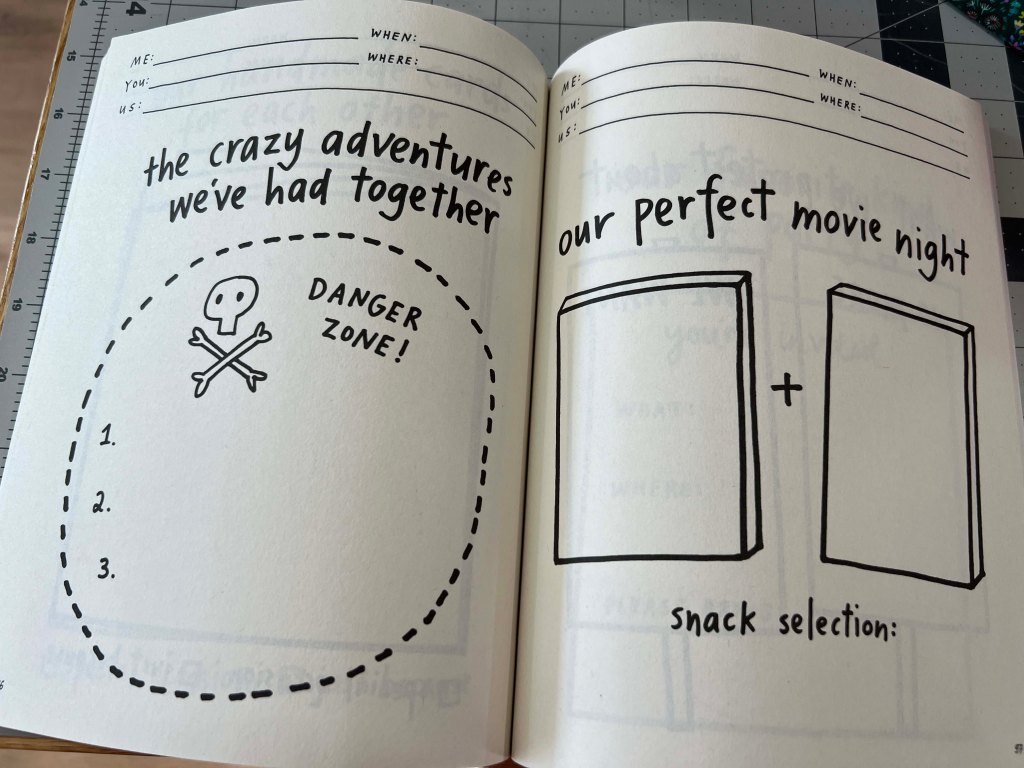 ME:
WHEN:
YOU:
WHERE:
US:
the crazy adventures
we've had together
DANGER
ZONE!
1.
2.
3.
ME:
WHEN:
YOU:
WHERE:
US:
our perfect movie night
+
snack selection: